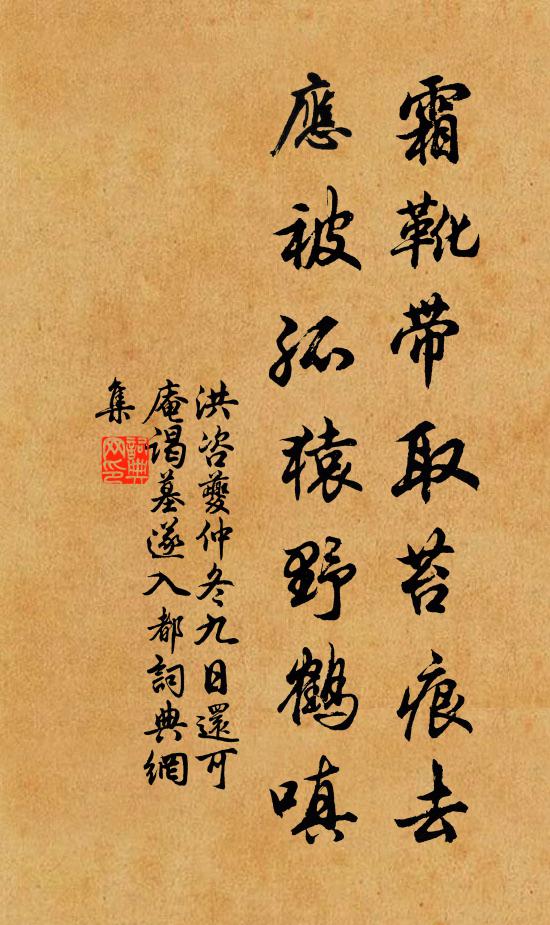 霜靴带取苔痕去
應被孤猿野鶴嗔
洪咨夔仲冬九日還可
庵謁墓遂入都詞典網
集